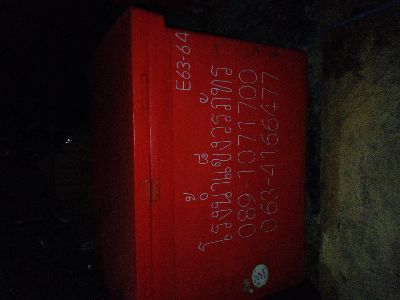 E63-64
โรงน้ำแข็งวรภัทร
089-1071700
063-4166477